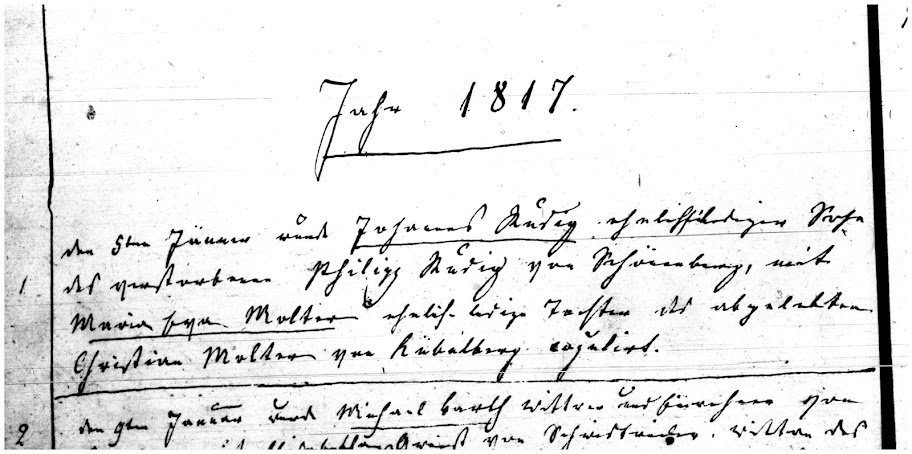 Jahr 1817.
den 5ten Jänner wurde Johannes Rudig ehelichlediger Sohn
1 des verstorbenen Philipp Rudig von Schönenberg, mit
Maria Eva Molter ehelich ledige Tochter des abgelebten
Christian Molter von Kübelberg copulirt.
2 den 9ten Januar wurde Michael Barth Wittwer und von
von Wittwe des